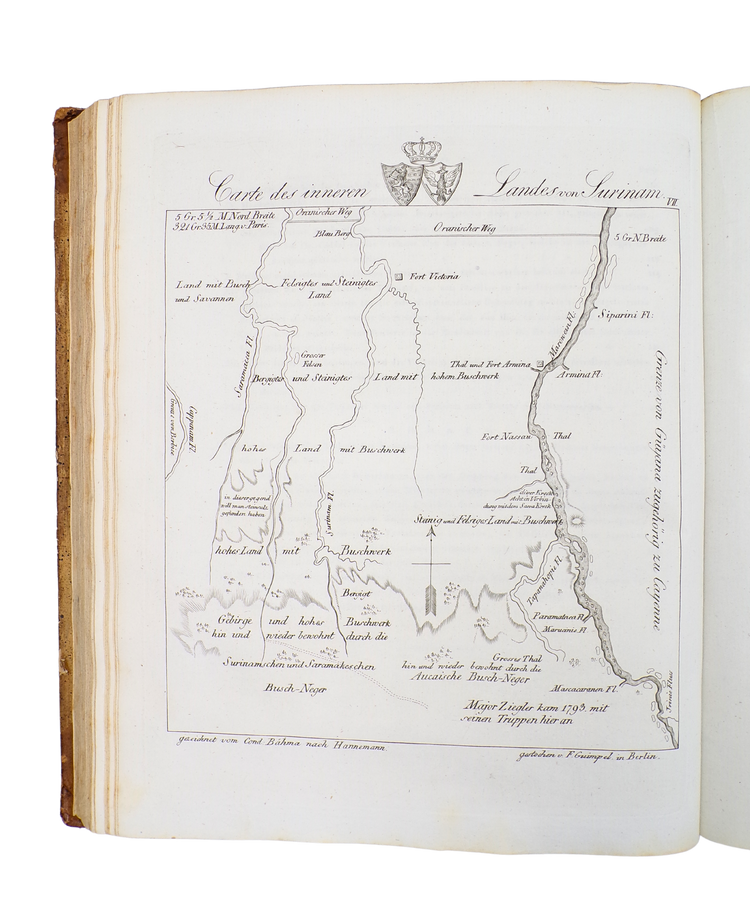 Carte des inneren Landes von Surinam.
VII
5 Gr 5¼ M Nord Breite
321 Gr 35 M. Lang. v. Paris.
Oranischer Weg
Blau Berg
Oranischer Weg
5 Gr N. Breite
Land mit Busch
und Savannen
Felsigtes und Steinigtes
Land
Fort Victoria
Siparini Fl:
Marowin Fl.
Saramacca Fl.
Grosser
Felsen
Thal und Fort Armina
Armina Fl:
Bergigtes und Steinigtes Land mit hohem Buschwerk
Grenze von Guyana zugehörig zu Cayenne
Cuppanam Fl.
Grenze von Berbice
hohes Land mit Buschwerk
Fort Nassau
Thal
Thal
in dieser gegend
soll man
gefunden haben
Surinam Fl.
Steinig und Felsiges Land mit Buschwerk
hohes Land mit Buschwerk
Bergigt
Tapanahopi Fl
Gebirge und hohes Buschwerk
hin und wieder bewohnt durch die
Surinamschen und Saramakeschen
Busch-Neger
Paramatnea Fl
Maruanie Fl.
Grosses Thal
hin und wieder bewohnt durch die
Aucaische Busch-Neger
Mascacaranen Fl.
Major Ziegler kam 1793. mit
seinen Truppen hier an
gezeichnet vom Cond Bähma nach Hannemann.
gestochen v. F Guimpel. in Berlin.